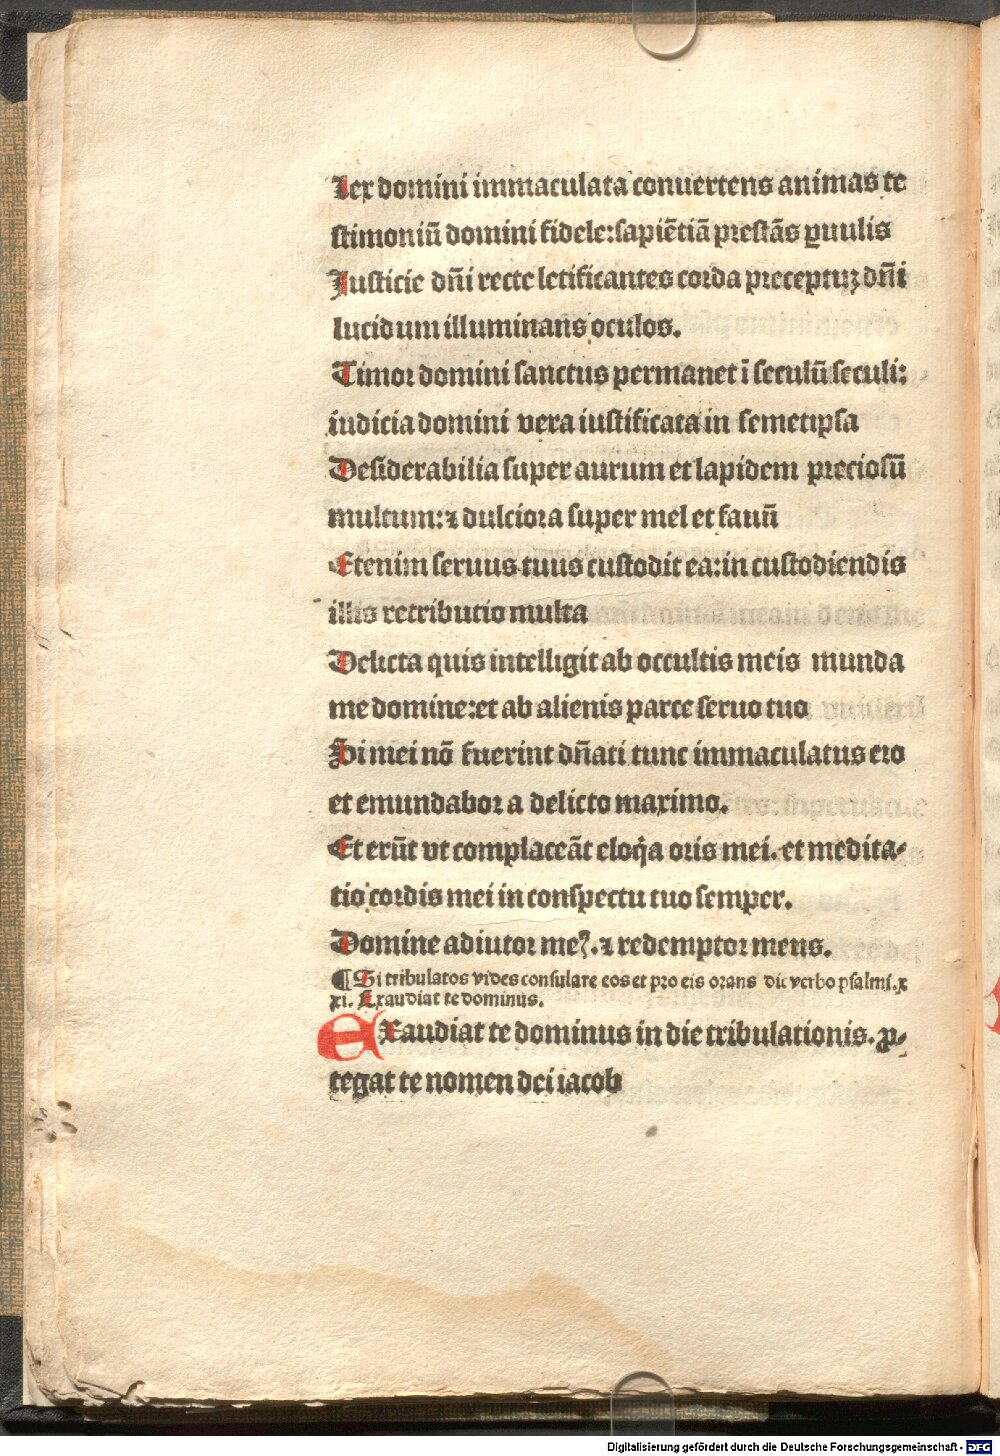 Lex domini immaculata conuertens animas te
stimoniū domini fidele:sapiētiā prestās ꝑuulis
Iusticie dn̄i recte letificantes corda preceptuꝫ dn̄i
lucidum illuminans oculos.
Timor domini sanctus permanet ī seculū seculi:
iudicia domini vera iustificata in semetipsa
Desiderabilia super aurum et lapidem preciosū
multum:⁊ dulciora super mel et fauū
Etenim seruus tuus custodit ea:in custodiendis
illis retributio multa
Delicta quis intelligit ab occultis meis munda
me domine:et ab alienis parce seruo tuo
Si mei nō fuerint dn̄ati tunc immaculatus ero
et emundabor a delicto maximo.
Et erūt vt complaceāt eloq̄a oris mei. et medita-
tio cordis mei in conspectu tuo semper.
Domine adiutor me⁹. ⁊ redemptor meus.
¶ Si tribulatos vides consulare eos et pro eis orans dic verbo psalmi. x
xi. Exaudiat te dominus.
EXaudiat te dominus in die tribulationis. ꝓ-
tegat te nomen dei iacob
Digitalisierung gefördert durch die Deutsche Forschungsgemeinschaft - DFG